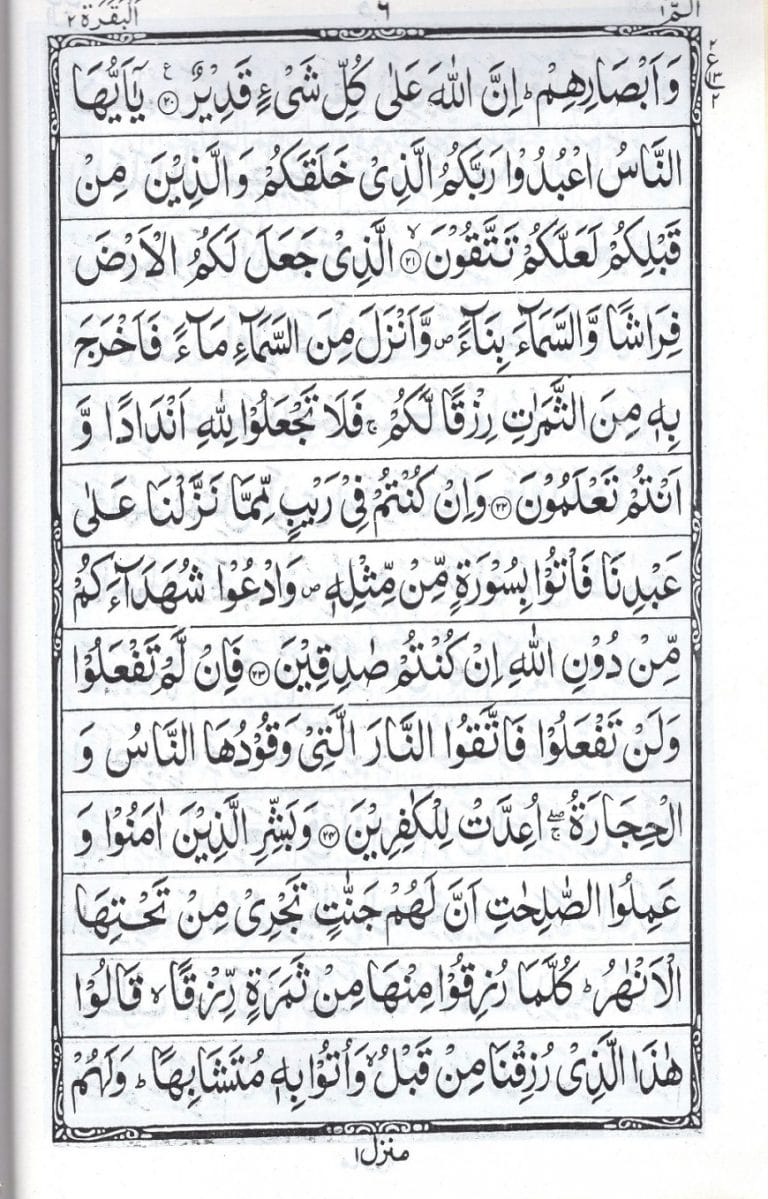 الٓمّٓ ١ ٦ اَلْبَقَرَة ٢
وَاَبْصَارِهِمْ ؕ اِنَّ اللّٰهَ عَلٰى كُلِّ شَىْءٍ قَدِيْرٌ ﴿۲۰﴾ ع يٰۤاَيُّهَا
٢ ع ١٣ ٢
النَّاسُ اعْبُدُوْا رَبَّكُمُ الَّذِىْ خَلَقَكُمْ وَالَّذِيْنَ مِنْ
قَبْلِكُمْ لَعَلَّكُمْ تَتَّقُوْنَ ۙ ﴿۲۱﴾ الَّذِىْ جَعَلَ لَكُمُ الْاَرْضَ
فِرَاشًا وَّالسَّمَآءَ بِنَآءً ۪ وَّاَنْزَلَ مِنَ السَّمَآءِ مَآءً فَاَخْرَجَ
بِهٖ مِنَ الثَّمَرٰتِ رِزْقًا لَّكُمْ ۚ فَلَا تَجْعَلُوْا لِلّٰهِ اَنْدَادًا وَّ
اَنْتُمْ تَعْلَمُوْنَ ﴿۲۲﴾ وَاِنْ كُنْتُمْ فِىْ رَيْبٍ مِّمَّا نَزَّلْنَا عَلٰى
عَبْدِنَا فَاْتُوْا بِسُوْرَةٍ مِّنْ مِّثْلِهٖ ۪ وَادْعُوْا شُهَدَآءَكُمْ
مِّنْ دُوْنِ اللّٰهِ اِنْ كُنْتُمْ صٰدِقِيْنَ ﴿۲۳﴾ فَاِنْ لَّمْ تَفْعَلُوْا
وَلَنْ تَفْعَلُوْا فَاتَّقُوا النَّارَ الَّتِىْ وَقُوْدُهَا النَّاسُ وَ
الْحِجَارَةُ ۖۚ اُعِدَّتْ لِلْكٰفِرِيْنَ ﴿۲۴﴾ وَبَشِّرِ الَّذِيْنَ اٰمَنُوْا وَ
عَمِلُوا الصّٰلِحٰتِ اَنَّ لَهُمْ جَنّٰتٍ تَجْرِىْ مِنْ تَحْتِهَا
الْاَنْهٰرُ ؕ كُلَّمَا رُزِقُوْا مِنْهَا مِنْ ثَمَرَةٍ رِّزْقًا ۙ قَالُوْا
هٰذَا الَّذِىْ رُزِقْنَا مِنْ قَبْلُ ۙ وَاُتُوْا بِهٖ مُتَشَابِهًا ؕ وَلَهُمْ
منزل ١